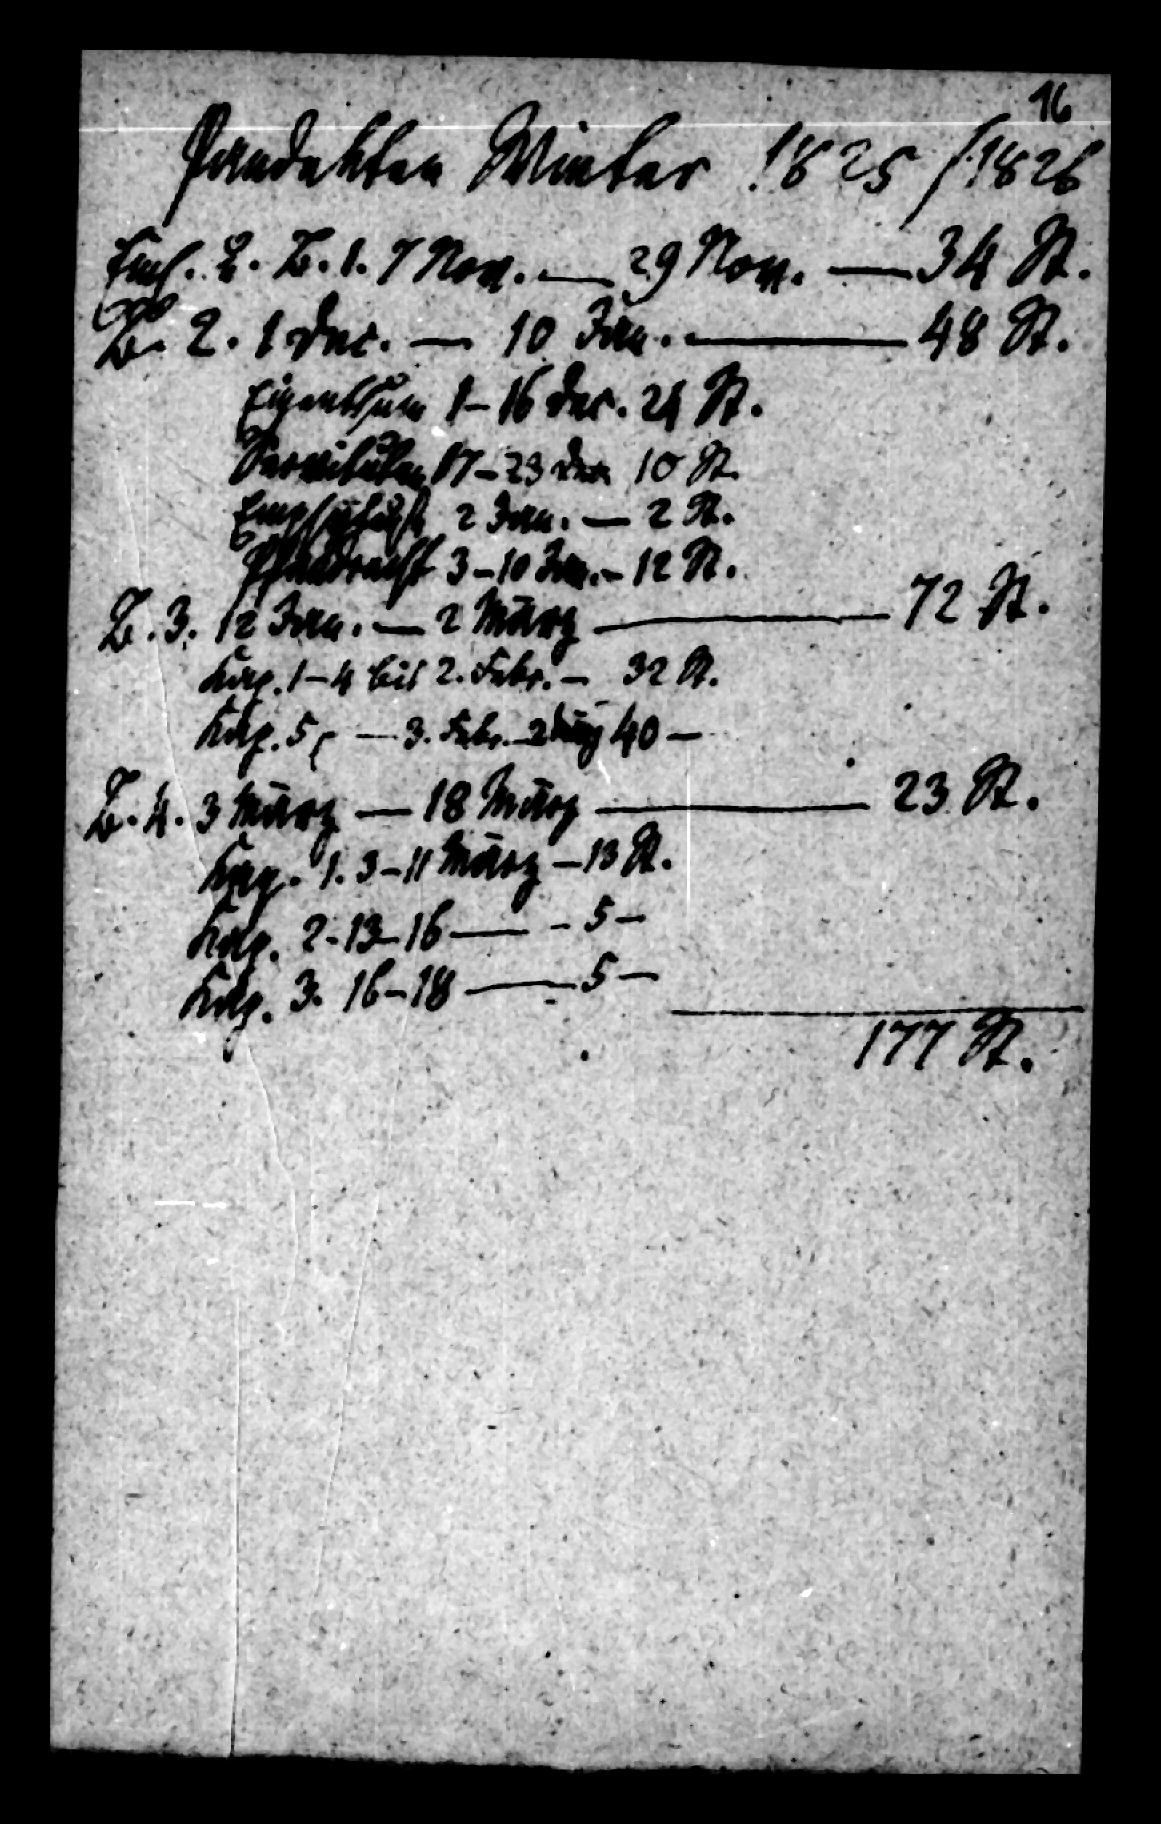 16
Pandekten Winter 1825/1826
Einl. u. B. 1. 7 Nov. — 29 Nov. — 34 St.
B. 2. 1 Dec. — 10 Jan. — 48 St.
Eigenthum 1–16 Dec. 24 St.
Servituten 17–23 Dec 10 St.
Emphyteuse 2 Jan. — 2 St.
Pfandrecht 3–10 Jan. – 12 St.
B. 3. 12 Jan. — 2 März — 72 St.
Kap. 1–4 bis 2. Febr. – 32 St.
Kap. 5 — 3. Febr. – 2 März 40 –
B. 4. 3 März — 18 März — 23 St.
Kap. 1. 3–11 März – 13 St.
Kap. 2. 13–16 — – 5 –
Kap. 3. 16–18 — 5 –
177 St.